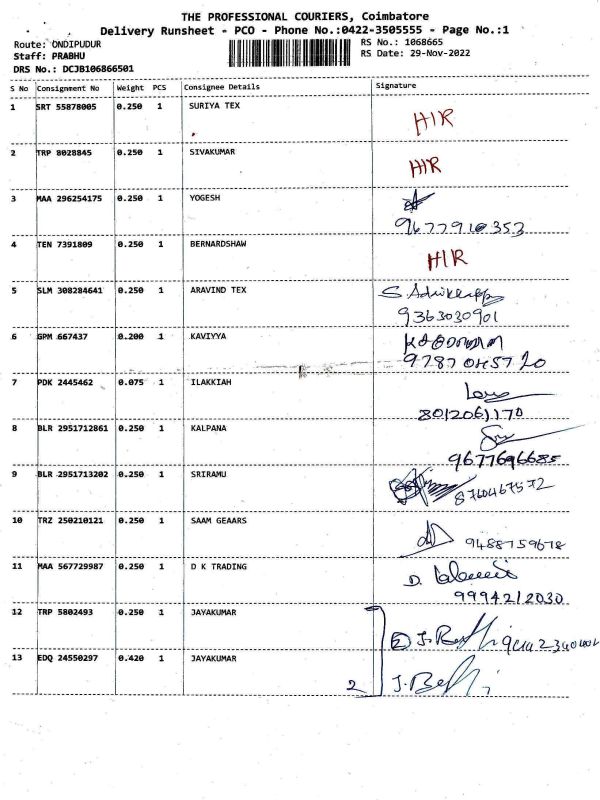 THE PROFESSIONAL COURIERS, Coimbatore
Delivery Runsheet - PCO - Phone No.:0422-3505555 - Page No.:1
Route: ONDIPUDUR RS No.: 1068665
Staff: PRABHU RS Date: 29-Nov-2022
DRS No.: DCJB106866501
S No Consignment No Weight PCS Consignee Details Signature
1 SRT 55878005 0.250 1 SURIYA TEX
HIR
2 TRP 8028845 0.250 1 SIVAKUMAR
HIR
3 MAA 296254175 0.250 1 YOGESH
9677910353
4 TEN 7391809 0.250 1 BERNARDSHAW
HIR
5 SLM 308284641 0.250 1 ARAVIND TEX
9363030901
6 GPM 667437 0.200 1 KAVIYYA
9787045720
7 PDK 2445462 0.075 1 ILAKKIAH
8012061170
8 BLR 2951712861 0.250 1 KALPANA
9677696685
9 BLR 2951713202 0.250 1 SRIRAMU
8760467572
10 TRZ 250210121 0.250 1 SAAM GEAARS
9488759678
11 MAA 567729987 0.250 1 D K TRADING
9994212030
12 TRP 5802493 0.250 1 JAYAKUMAR
13 EDQ 24550297 0.420 1 JAYAKUMAR
2